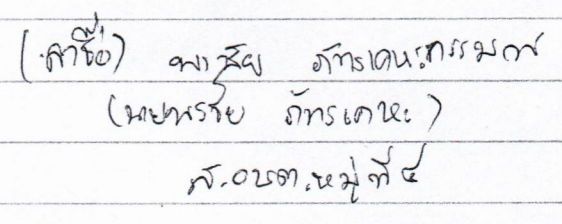 (ลงชื่อ) พรชัย ภัทรเคหะ กรรมการ
(นายพรชัย ภัทรเคหะ)
ส.อบต.หมู่ที่ ๕